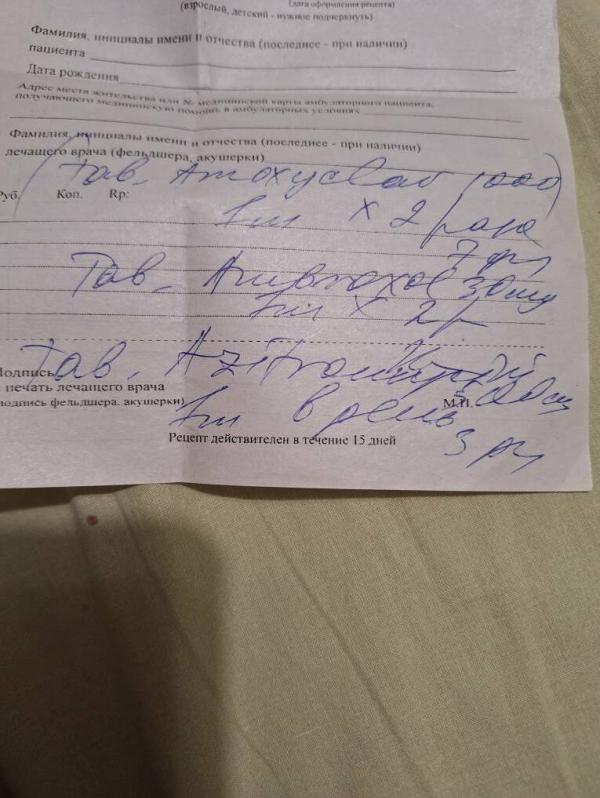 (дата оформления рецепта)
(взрослый, детский - нужное подчеркнуть)
Фамилия, инициалы имени и отчества (последнее - при наличии)
пациента
Дата рождения
Адрес места жительства или № медицинской карты амбулаторного пациента,
получающего медицинскую помощь в амбулаторных условиях
Фамилия, инициалы имени и отчества (последнее - при наличии)
лечащего врача (фельдшера, акушерки)
(Tab. Amoxyclav 1000)
Руб. Коп. Rp:
1т x 2 раза
7 дн
Tab. Амброхол 30mg
1т x 2 р
Tab. 500
Подпись
и печать лечащего врача
(подпись фельдшера, акушерки)
М.П.
1т в день
3 дн
Рецепт действителен в течение 15 дней